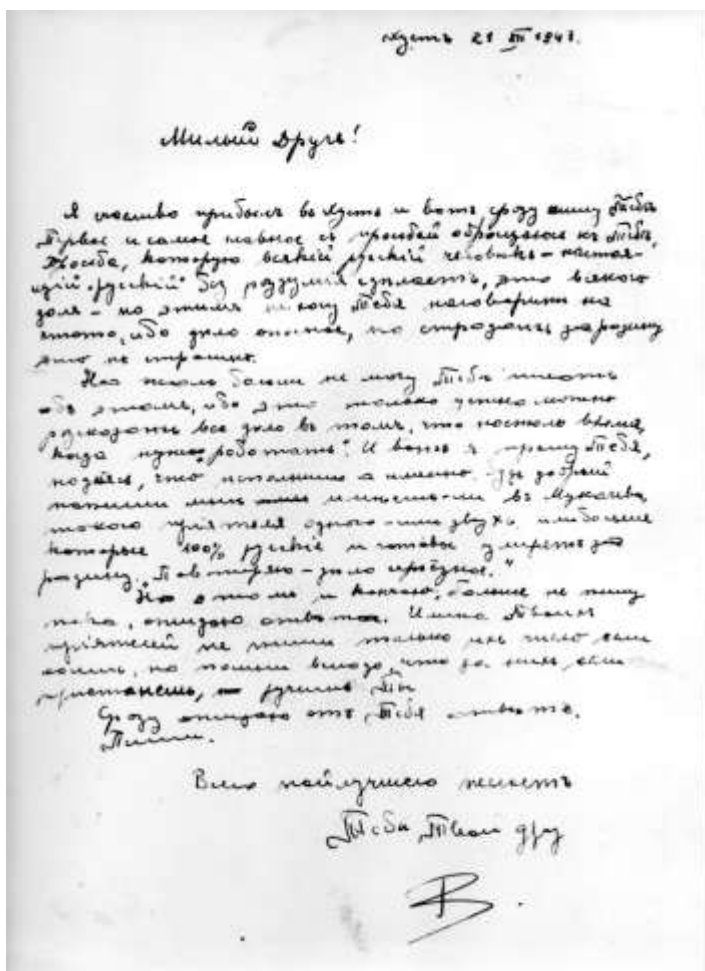 Хустъ 21 III 1943.
Милый Другъ!
Я счасливо прибылъ въ Хустъ и вотъ сразу пишу Тебѣ
Первое и самое главное съ прозьбой обращаюсь къ Тебѣ,
Прозьба, которую всякій русскій человѣкъ – настоя-
щій „русскій“ без раздумія сдѣлаетъ, это всякого
доля – но этимъ не хочу Тебя наговорити на
этото, ибо дѣло опасное, но страдать за родину
это не страшно.
На жаль больше не могу Тебѣ писать
объ этомъ, ибо это только устно можно
розсказать все дѣло въ томъ, что настало время,
когда нужно „роботать“. И вотъ я прошу Тебя,
надѣясь, что исполнишь а именно. Будь добрый
напиши мнѣ имѣешь-ли въ Мукачевѣ
такого пріятеля одного-или двухъ, или больше
которые 100% русскіе и готовы умереть за
родину. Повторяю – дѣло серіозное.“
На этомъ и кончаю, больше не пишу
пока, ожидаю отвѣта. Имена Твоихъ
пріятелей не пиши только ихъ число или
одинъ, но помни что за нихъ, если
пристанешь, ручишь Ты
Сразу ожидаю отъ Тебя отвѣта.
Пиши.
Всего найлучшего желаетъ
Тебѣ, Твой дру